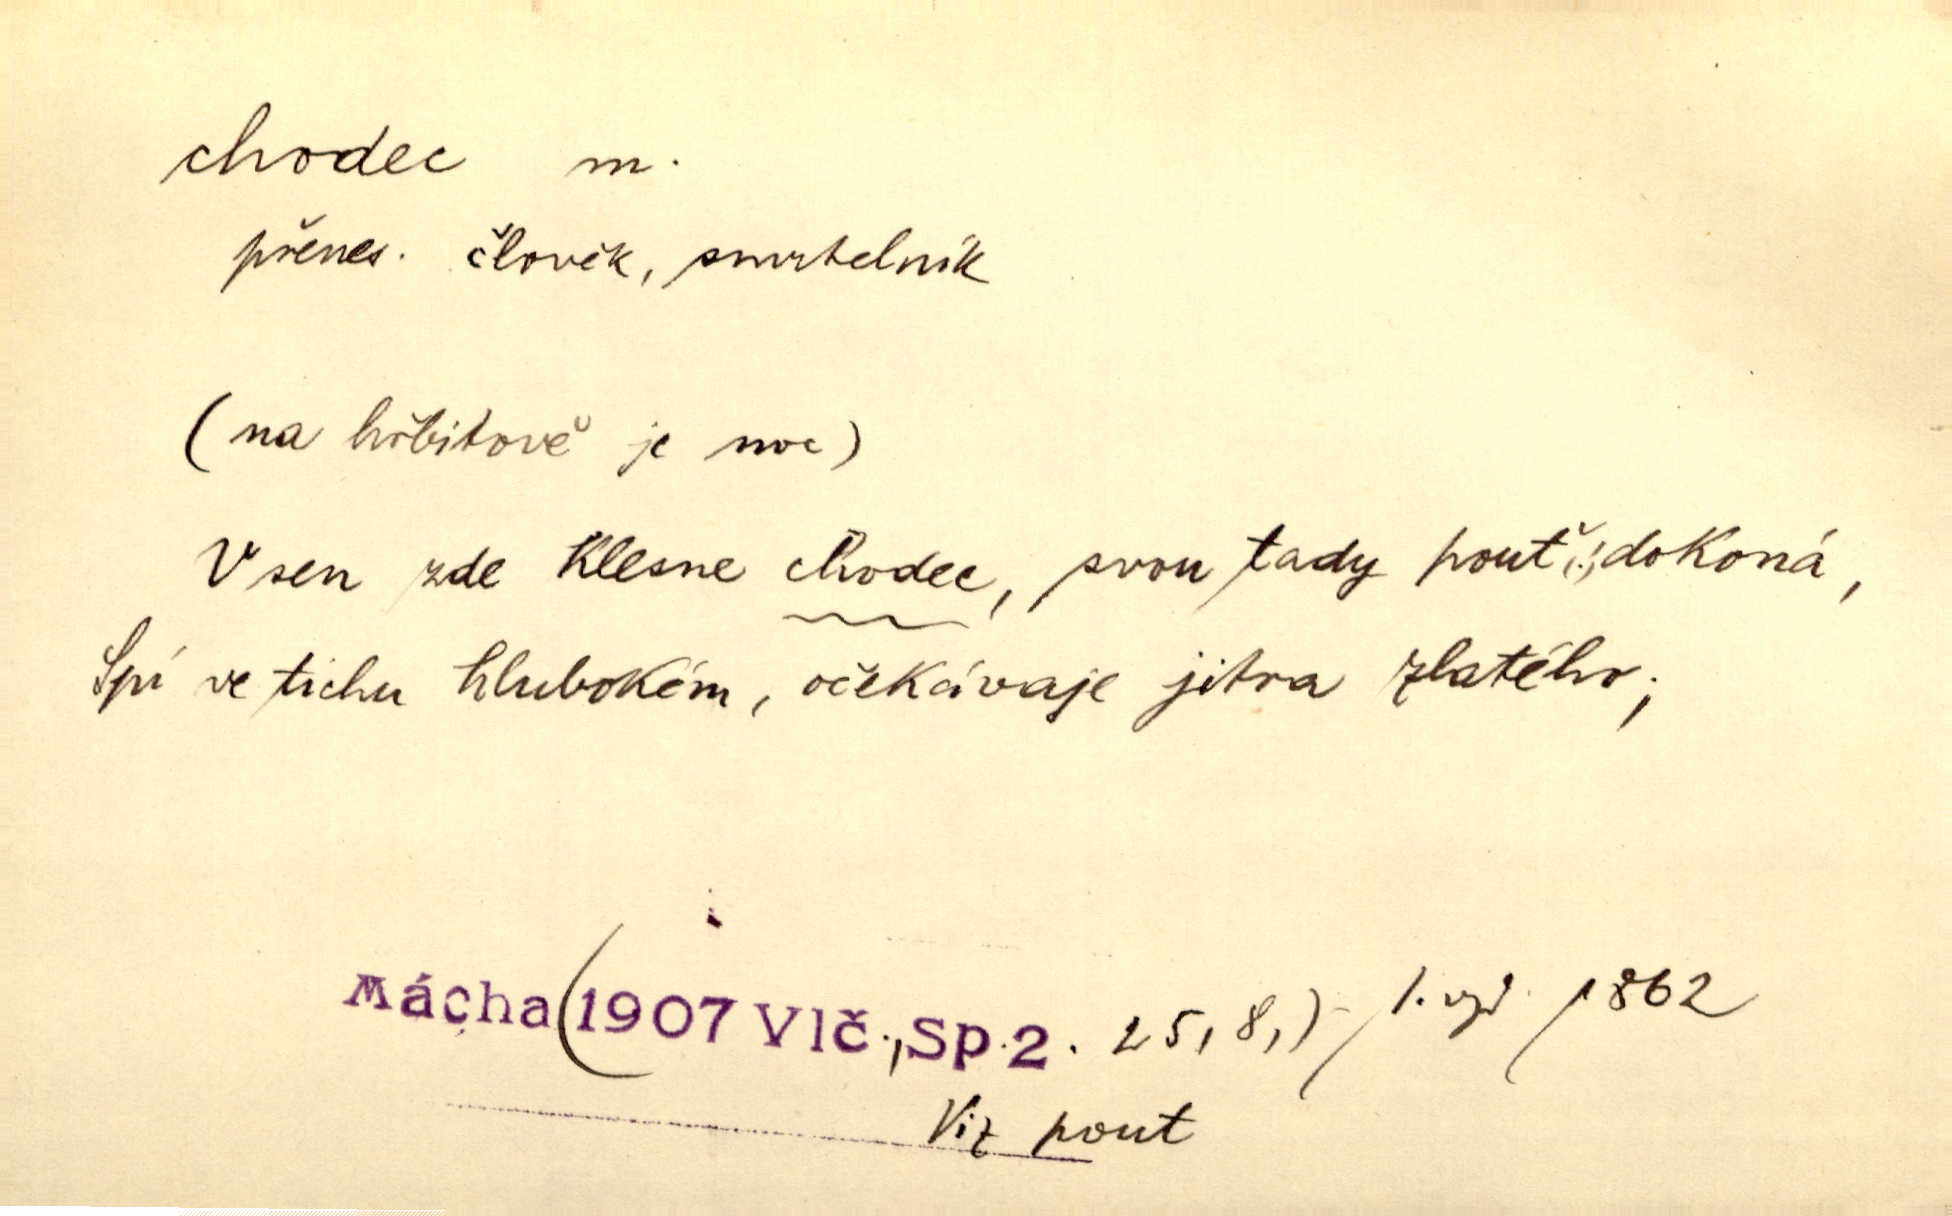 chodec m.
přenes. člověk, smrtelník
(na hřbitově je noc)
V sen zde klesne chodec, svou tady pouť (:) dokoná,
Spí ve tichu hlubokém, očekávaje jitra zlatého;
Mácha (1907 Vlč., Sp.2. 25, 8,) 1. vyd. 1862
Viz pout